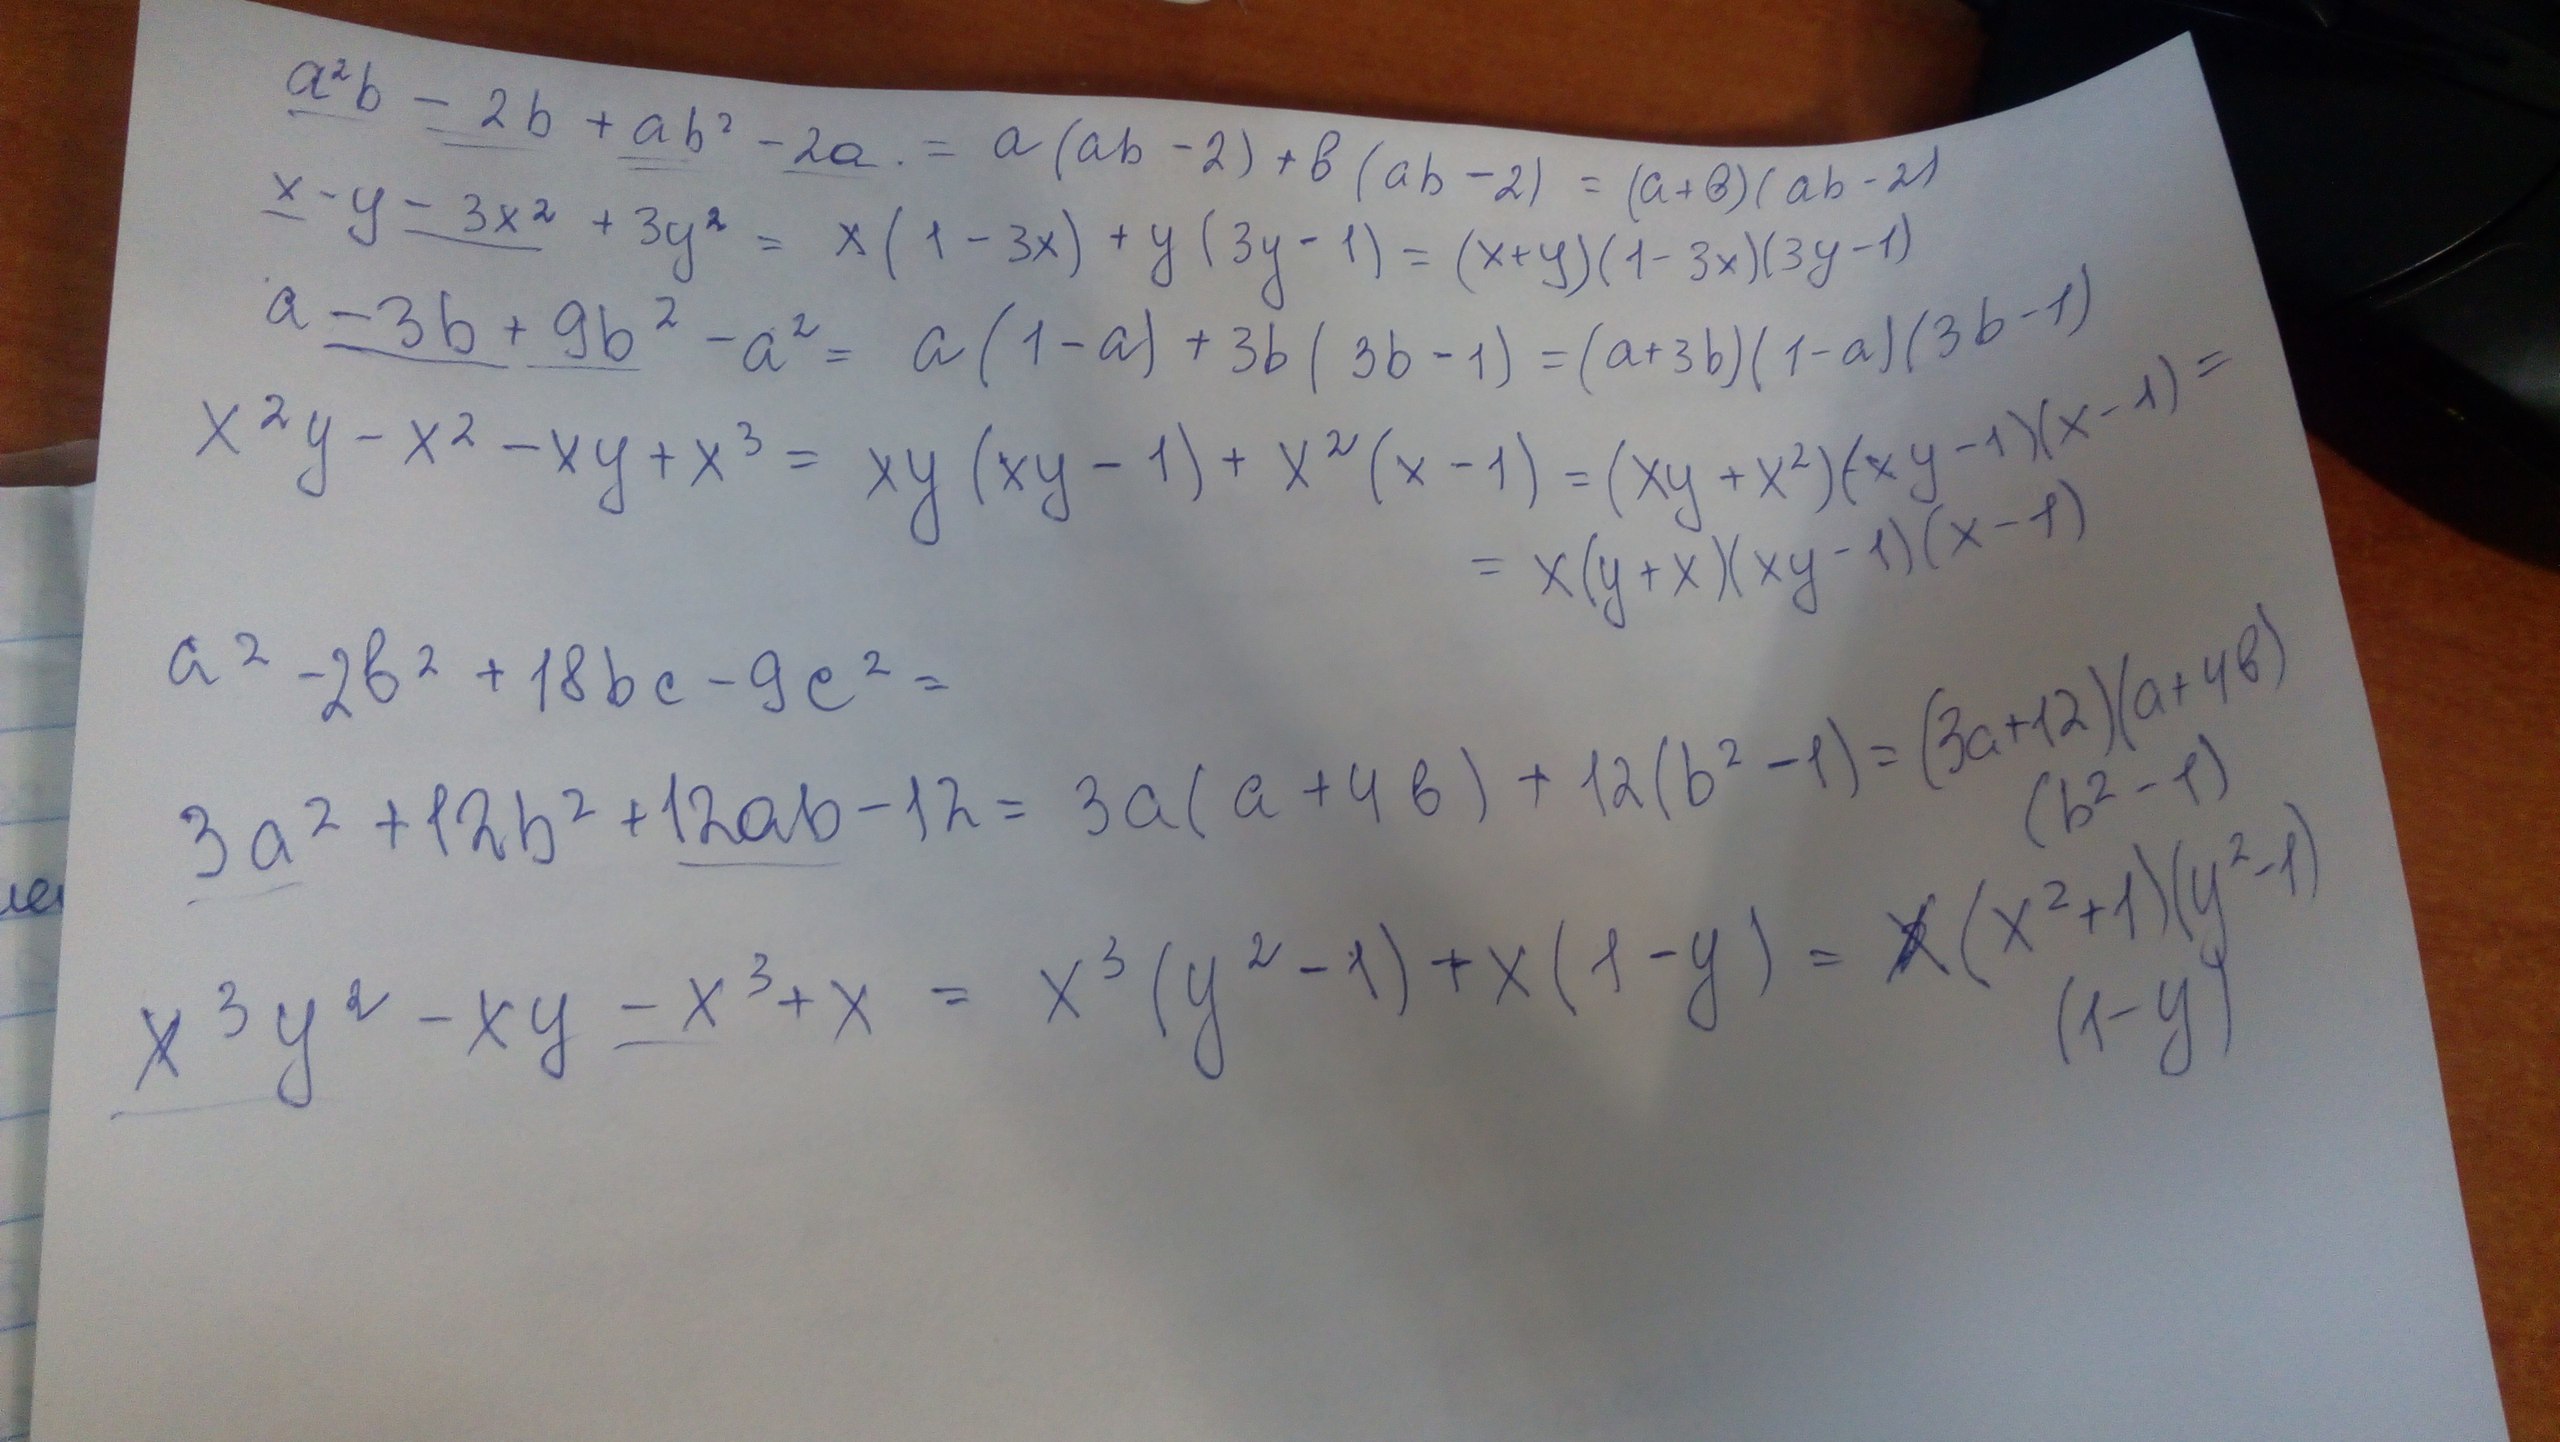 a²b - 2b + ab² - 2a . = a(ab - 2) + b(ab - 2) = (a+b)(ab - 2)
x - y - 3x² + 3y² = x(1 - 3x) + y(3y - 1) = (x+y)(1 - 3x)(3y - 1)
a - 3b + 9b² - a² = a(1 - a) + 3b(3b - 1) = (a+3b)(1 - a)(3b - 1)
x²y - x² - xy + x³ = xy(xy - 1) + x²(x - 1) = (xy + x²)(xy - 1)(x - 1) =
= x(y + x)(xy - 1)(x - 1)
a² - 2b² + 18bc - 9c² =
3a² + 12b² + 12ab - 12 = 3a(a + 4b) + 12(b² - 1) = (3a + 12)(a + 4b)
(b² - 1)
x³y² - xy - x³ + x = x³(y² - 1) + x(1 - y) = x(x² + 1)(y² - 1)
(1 - y)